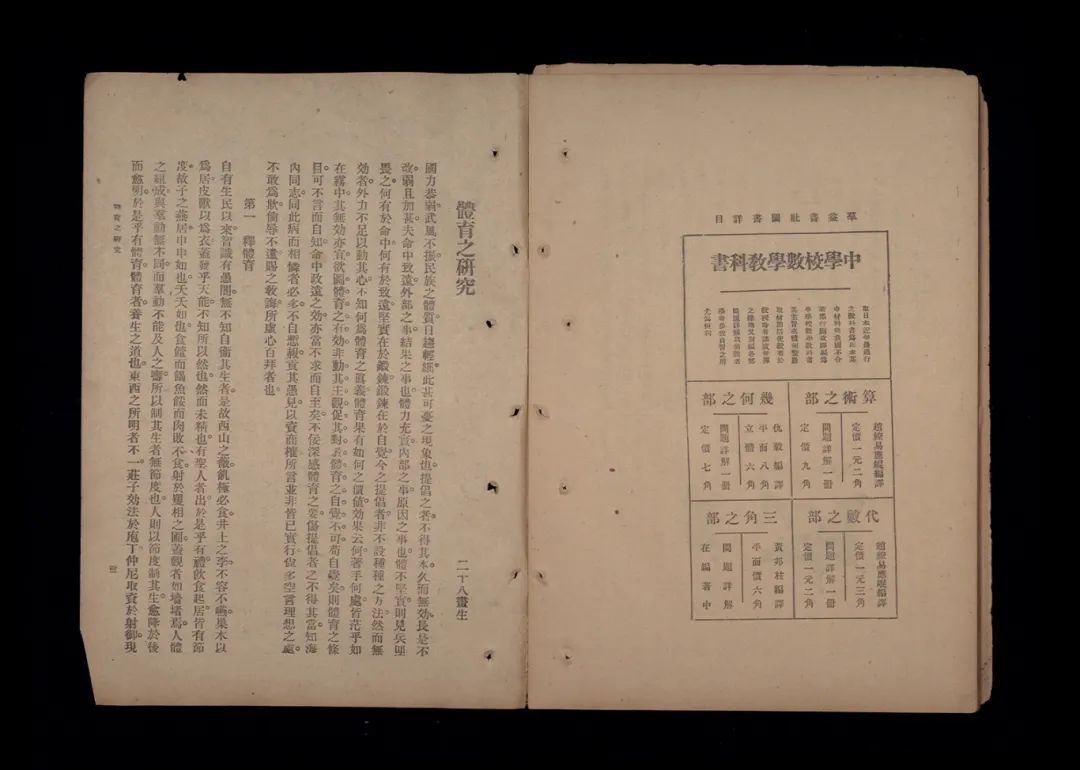 羣益書社圖書詳目
中學校數學教科書
算術之部
趙繚易應崐編譯
定價一元二角
問題詳解一冊
定價九角
幾何之部
仇毅編譯
平面八角
立體六角
問題詳解一冊
定價七角
代數之部
趙繚易應崐編譯
定價一元三角
問題詳解一冊
定價一元二角
三角之部
黃邦柱編譯
平面價六角
問題詳解
在編著中
體育之研究
二十八畫生
國力恭弱。武風不振。民族之體質日趨輕細。此甚可憂之現象也。提倡之者。不得其本。久而無效。長是不
改。弱且加甚。夫命中致遠。外部之事。結果之事也。體力充實。內部之事。原因之事也。體不堅實。則見兵而
畏之。何有於命中。何有於致遠。堅實在於鍛鍊。鍛鍊在於自覺。今之提倡者。非不設種種之方法。然而無
効者。外力不足以動其心。不知何爲體育之眞義。體育果有如何之價値。効果云何。著手何處。皆茫乎如
在霧中。其無効亦宜。欲圖體育之有効。非動其主觀。促其對於體育之自覺不可。苟自覺矣。則體育之條
目。可不言而自知。命中致遠之効。亦當不求而自至矣。不佞深感體育之要。傷提倡者之不得其當。知海
內同志。同此病而相憐者必多。不自慚赧。貢其愚見。以資商榷。所言並非皆已實行。尙多空言理想之處。
不敢爲欺。倘辱不遺。賜之教誨。所虛心百拜者也。
第一　釋體育
自有生民以來。智識有愚闇。無不知自衞其生者。是故西山之薇。飢極必食。井上之李。不容不嚥。巢木以
爲居。皮獸以爲衣。蓋發乎天能。不知所以然也。然而未精也。有聖人者出。於是乎有禮。飲食起居。皆有節
度。故子之燕居。申申如也。夭夭如也。食饐而餲。魚餒而肉敗。不食。射於矍相之圃。蓋觀者如墻堵焉。人體
之組成。與羣動無不同。而羣動不能及人之壽。所以制其生者無節度也。人則以節度制其生。愈降於後
而愈明。於是乎有體育。體育者。養生之道也。東西之所明者不一。莊子効法於庖丁。仲尼取資於射御。現
體育之研究